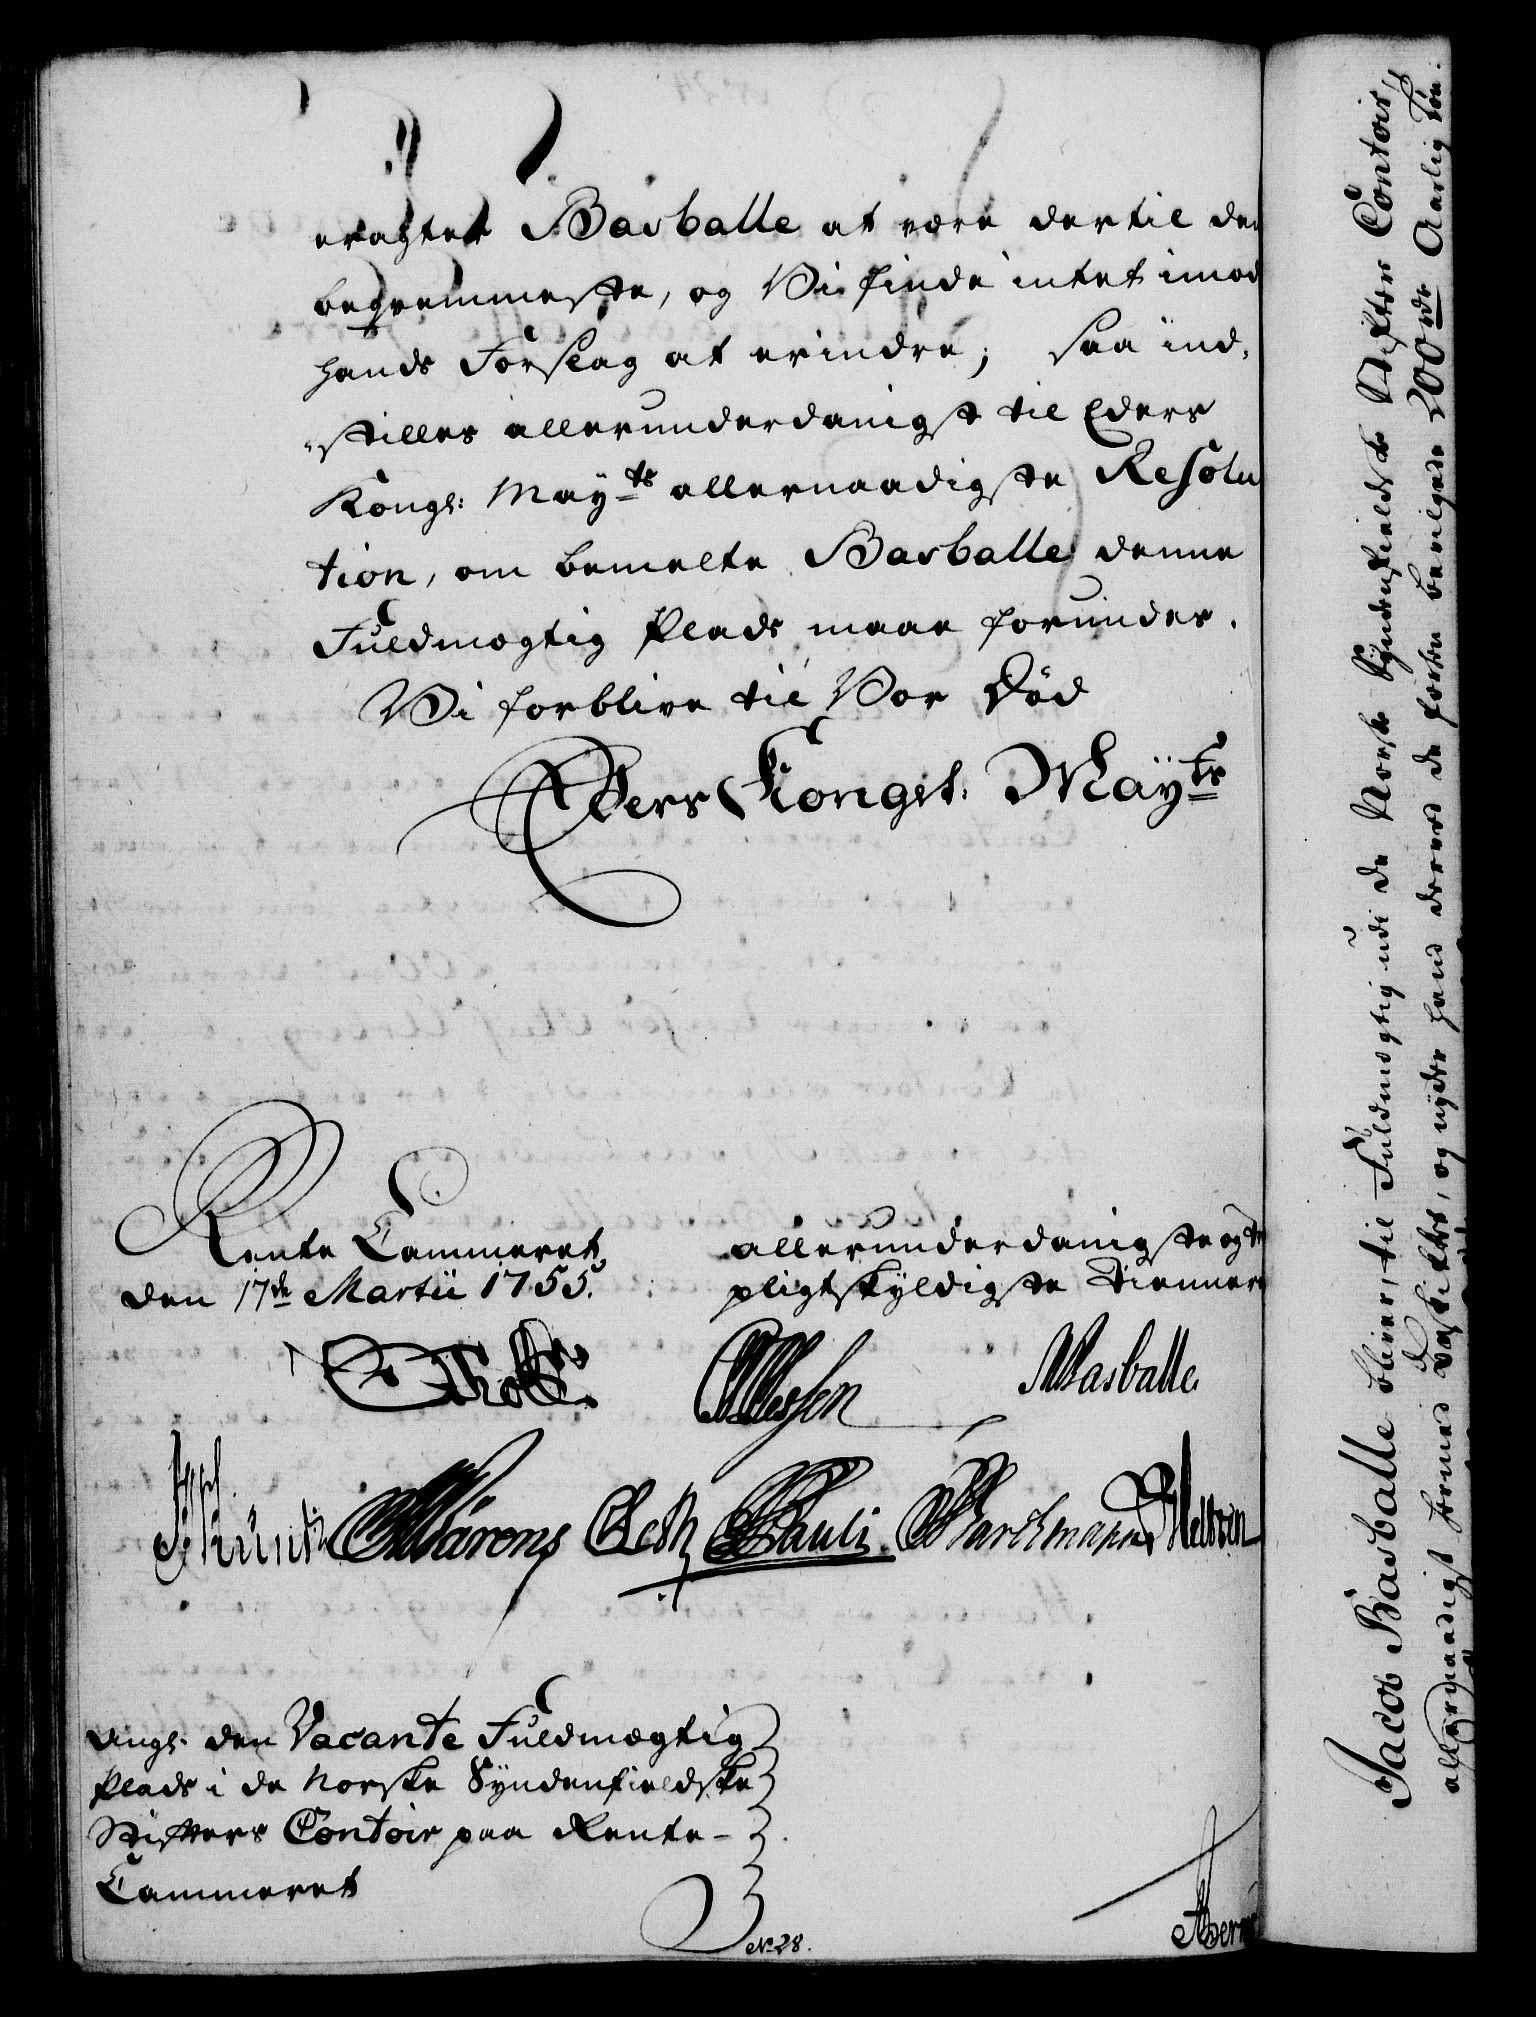 eragter Basballe at være dertil den
beqvemmeste, og Vi finde intet imod
hands Forslag at erindre; saa ind-
stilles allerunderdanigst til Eders
Kongl: May^ts allernaadigste Resolu
tion, om bemelte Basballe denne
Fuldmægtig Plads maae forundes.
Vi forblive til Vor Død
Eders Kongel: May^ts
Rente Cammeret
den 17de Martii 1755.
allerunderdanigste og
pligtskyldigste Tiennere
Basballe
Pauli
Angl: den Vacante Fuldmægtig
Plads i de Norske Syndenfieldske
Stifters Contoir paa Rente-
Cammeret
No 28.
Jacob Basballe bliver til Fuldmægtig udi de Norske Syndenfieldske Stifters Contoir,
allernaadigst hermed beskikket, og nyder hand derved de forhen bevilgede 200 rdr Aarlig Løn.